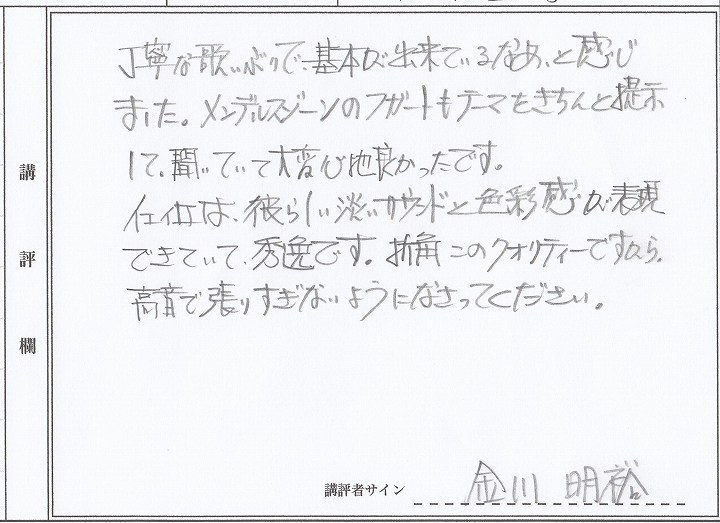 講評欄
丁寧な歌いぶりで、基本が出来ているなあ、と感じ
ました。メンデルスゾーンのフガートもテーマをきちんと提示
して、聞いていて大変心地良かったです。
は、彼らしい淡いサウンドと色彩感が表現
できていて、秀逸です。折角このクオリティーですから、
高音で張りすぎないようになさってください。
講評者サイン 金川 明裕